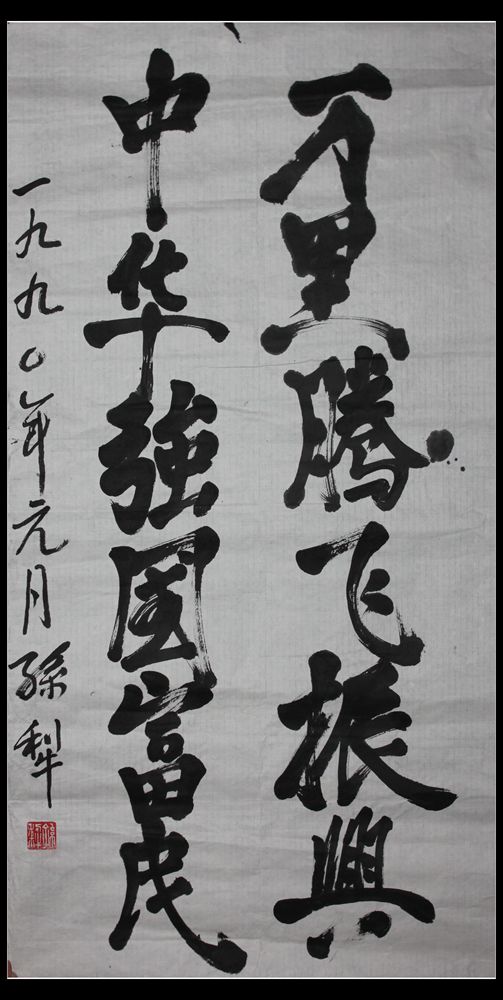 万里腾飞振興
中华強国富民
一九九〇年元月 孫犁